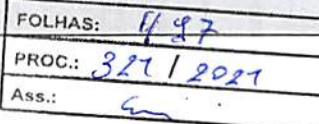 FOLHAS: 97
PROC.: 321 / 2021
Ass.: